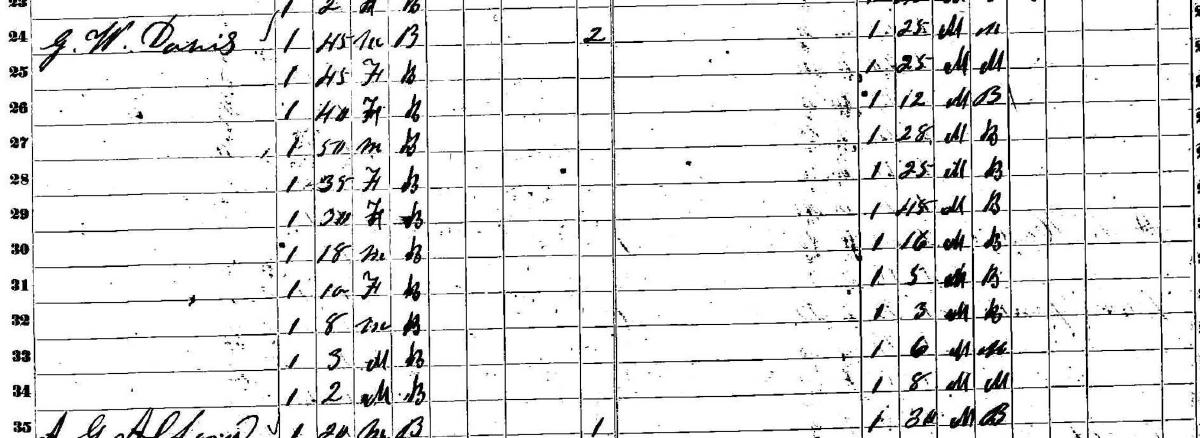 23 1 2 B
24 G. W. Davis 1 45 m B 2 1 25 M m
25 1 45 F B 1 25 M M
26 1 40 F B 1 12 M B
27 1 50 m B 1 28 M B
28 1 35 F B 1 25 M B
29 1 30 F B 1 45 M B
30 1 18 m B 1 16 M B
31 1 10 F B 1 5 M B
32 1 8 m B 1 3 M B
33 1 3 M B 1 6 M m
34 1 2 M B 1 8 M M
35 1 20 m B 1 1 30 M B